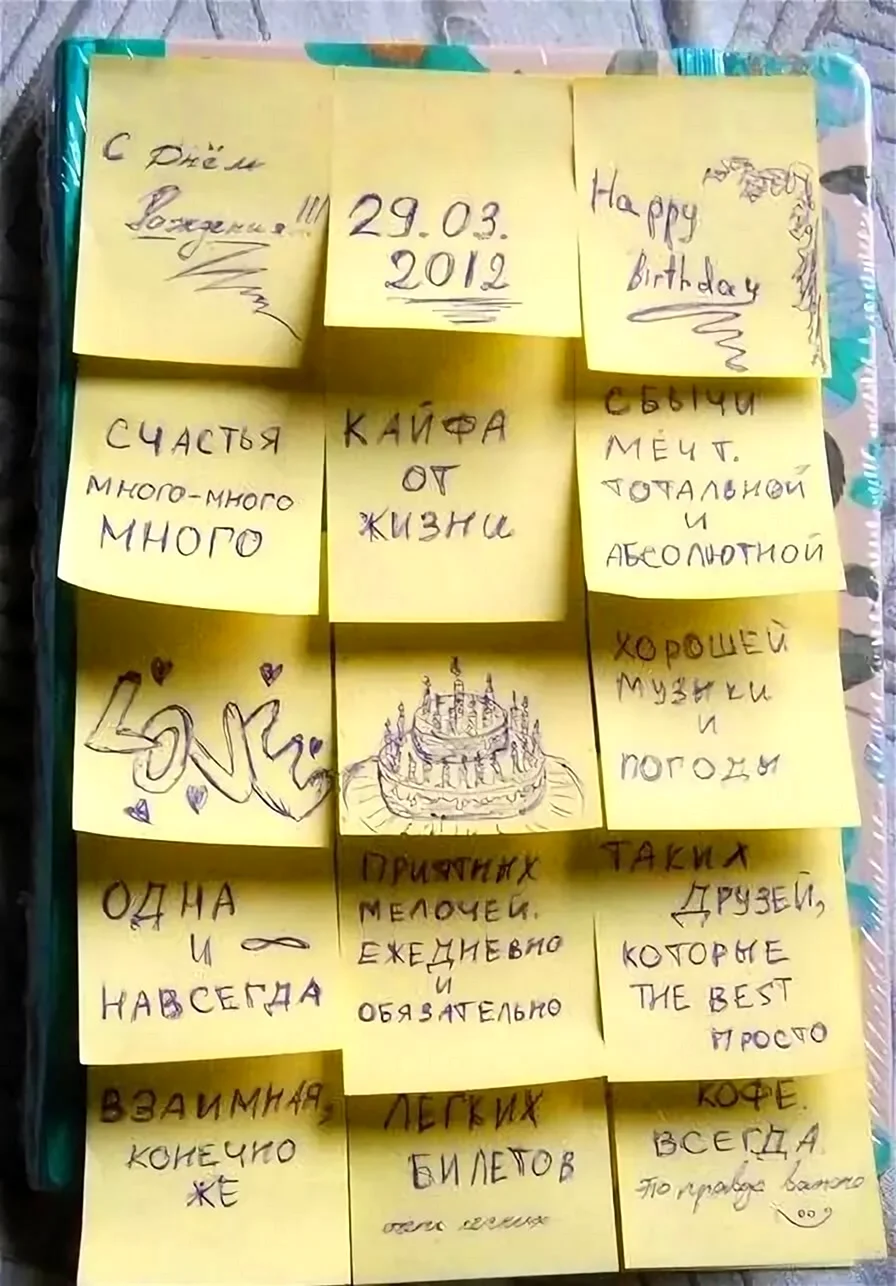 С Днём
Рождения!!!
29.03.
2012
Happy
Birthday
СЧАСТЬЯ
МНОГО-МНОГО
МНОГО
КАЙФА
ОТ
ЖИЗНИ
СБЫЧИ
МЕЧТ.
ТОТАЛЬНОЙ
И
АБСОЛЮТНОЙ
LOVE
ХОРОШЕЙ
МУЗЫКИ
И
ПОГОДЫ
ОДНА
И ∞
НАВСЕГДА
ПРИЯТНЫХ
МЕЛОЧЕЙ.
ЕЖЕДНЕВНО
И
ОБЯЗАТЕЛЬНО
ТАКИХ
ДРУЗЕЙ,
КОТОРЫЕ
THE BEST
ПРОСТО
ВЗАИМНАЯ,
КОНЕЧНО
ЖЕ
ЛЕГКИХ
БИЛЕТОВ
КОФЕ.
ВСЕГДА
это правда важно